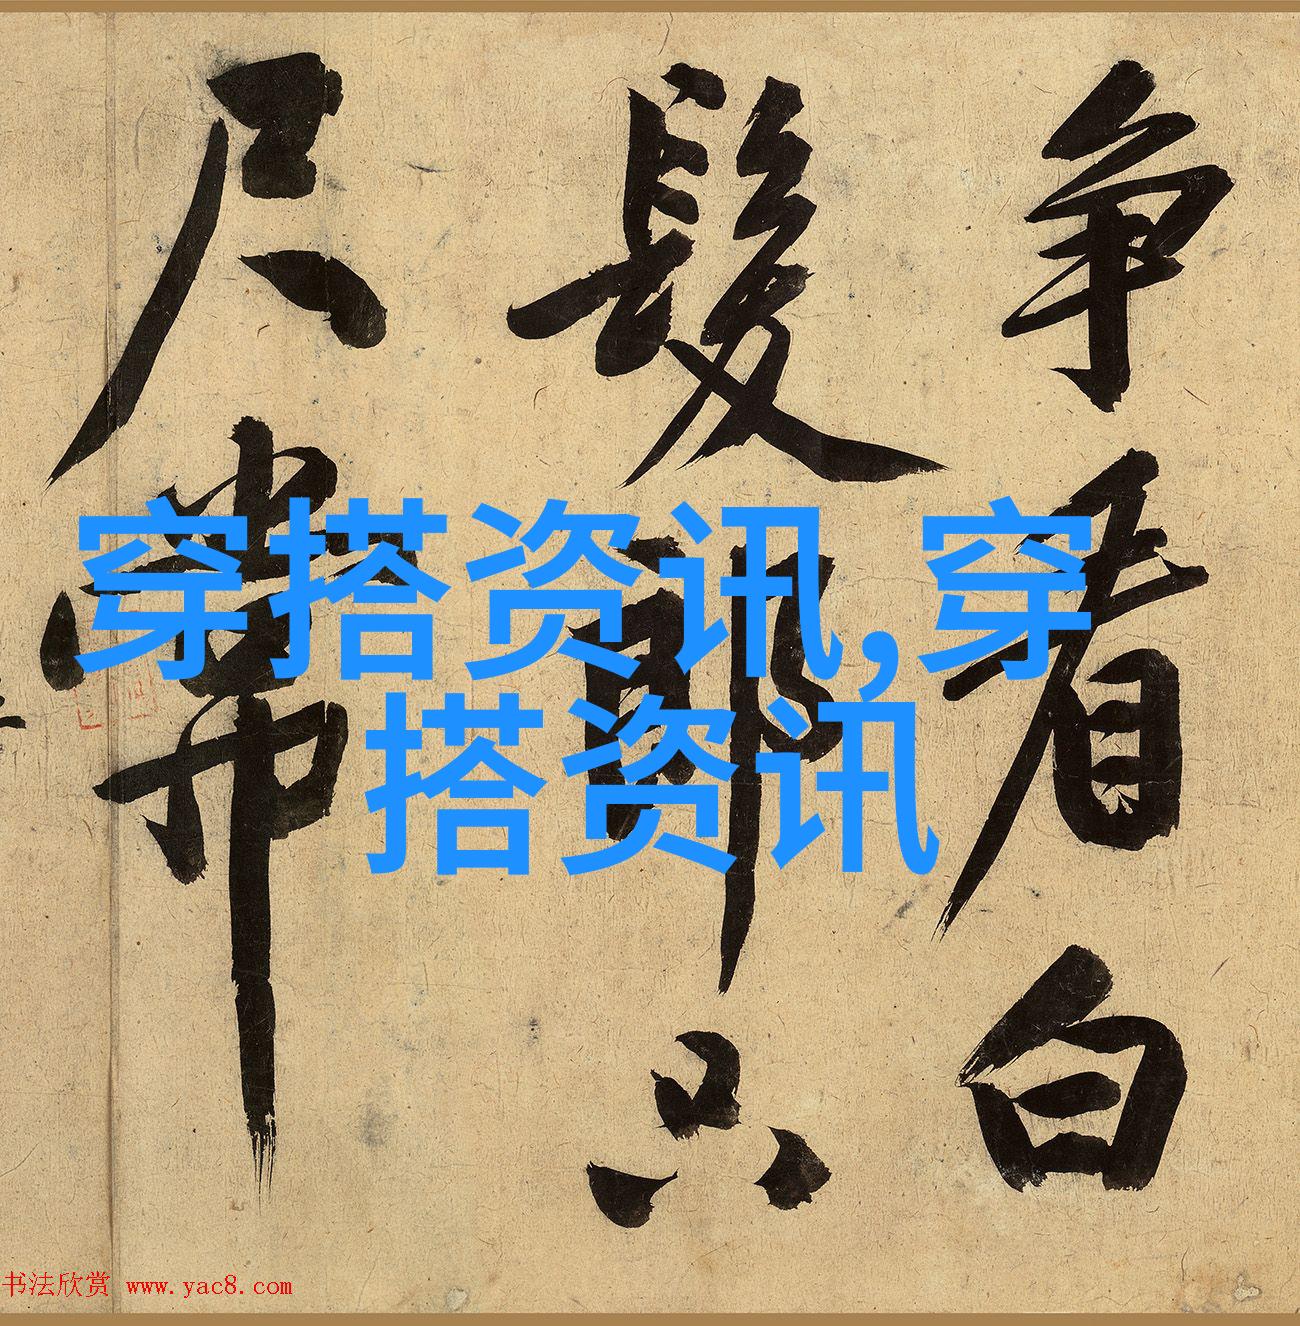 争看白
髮郎只
尺常
穿搭资讯,穿
搭资讯
书法欣赏 www.yac8.com